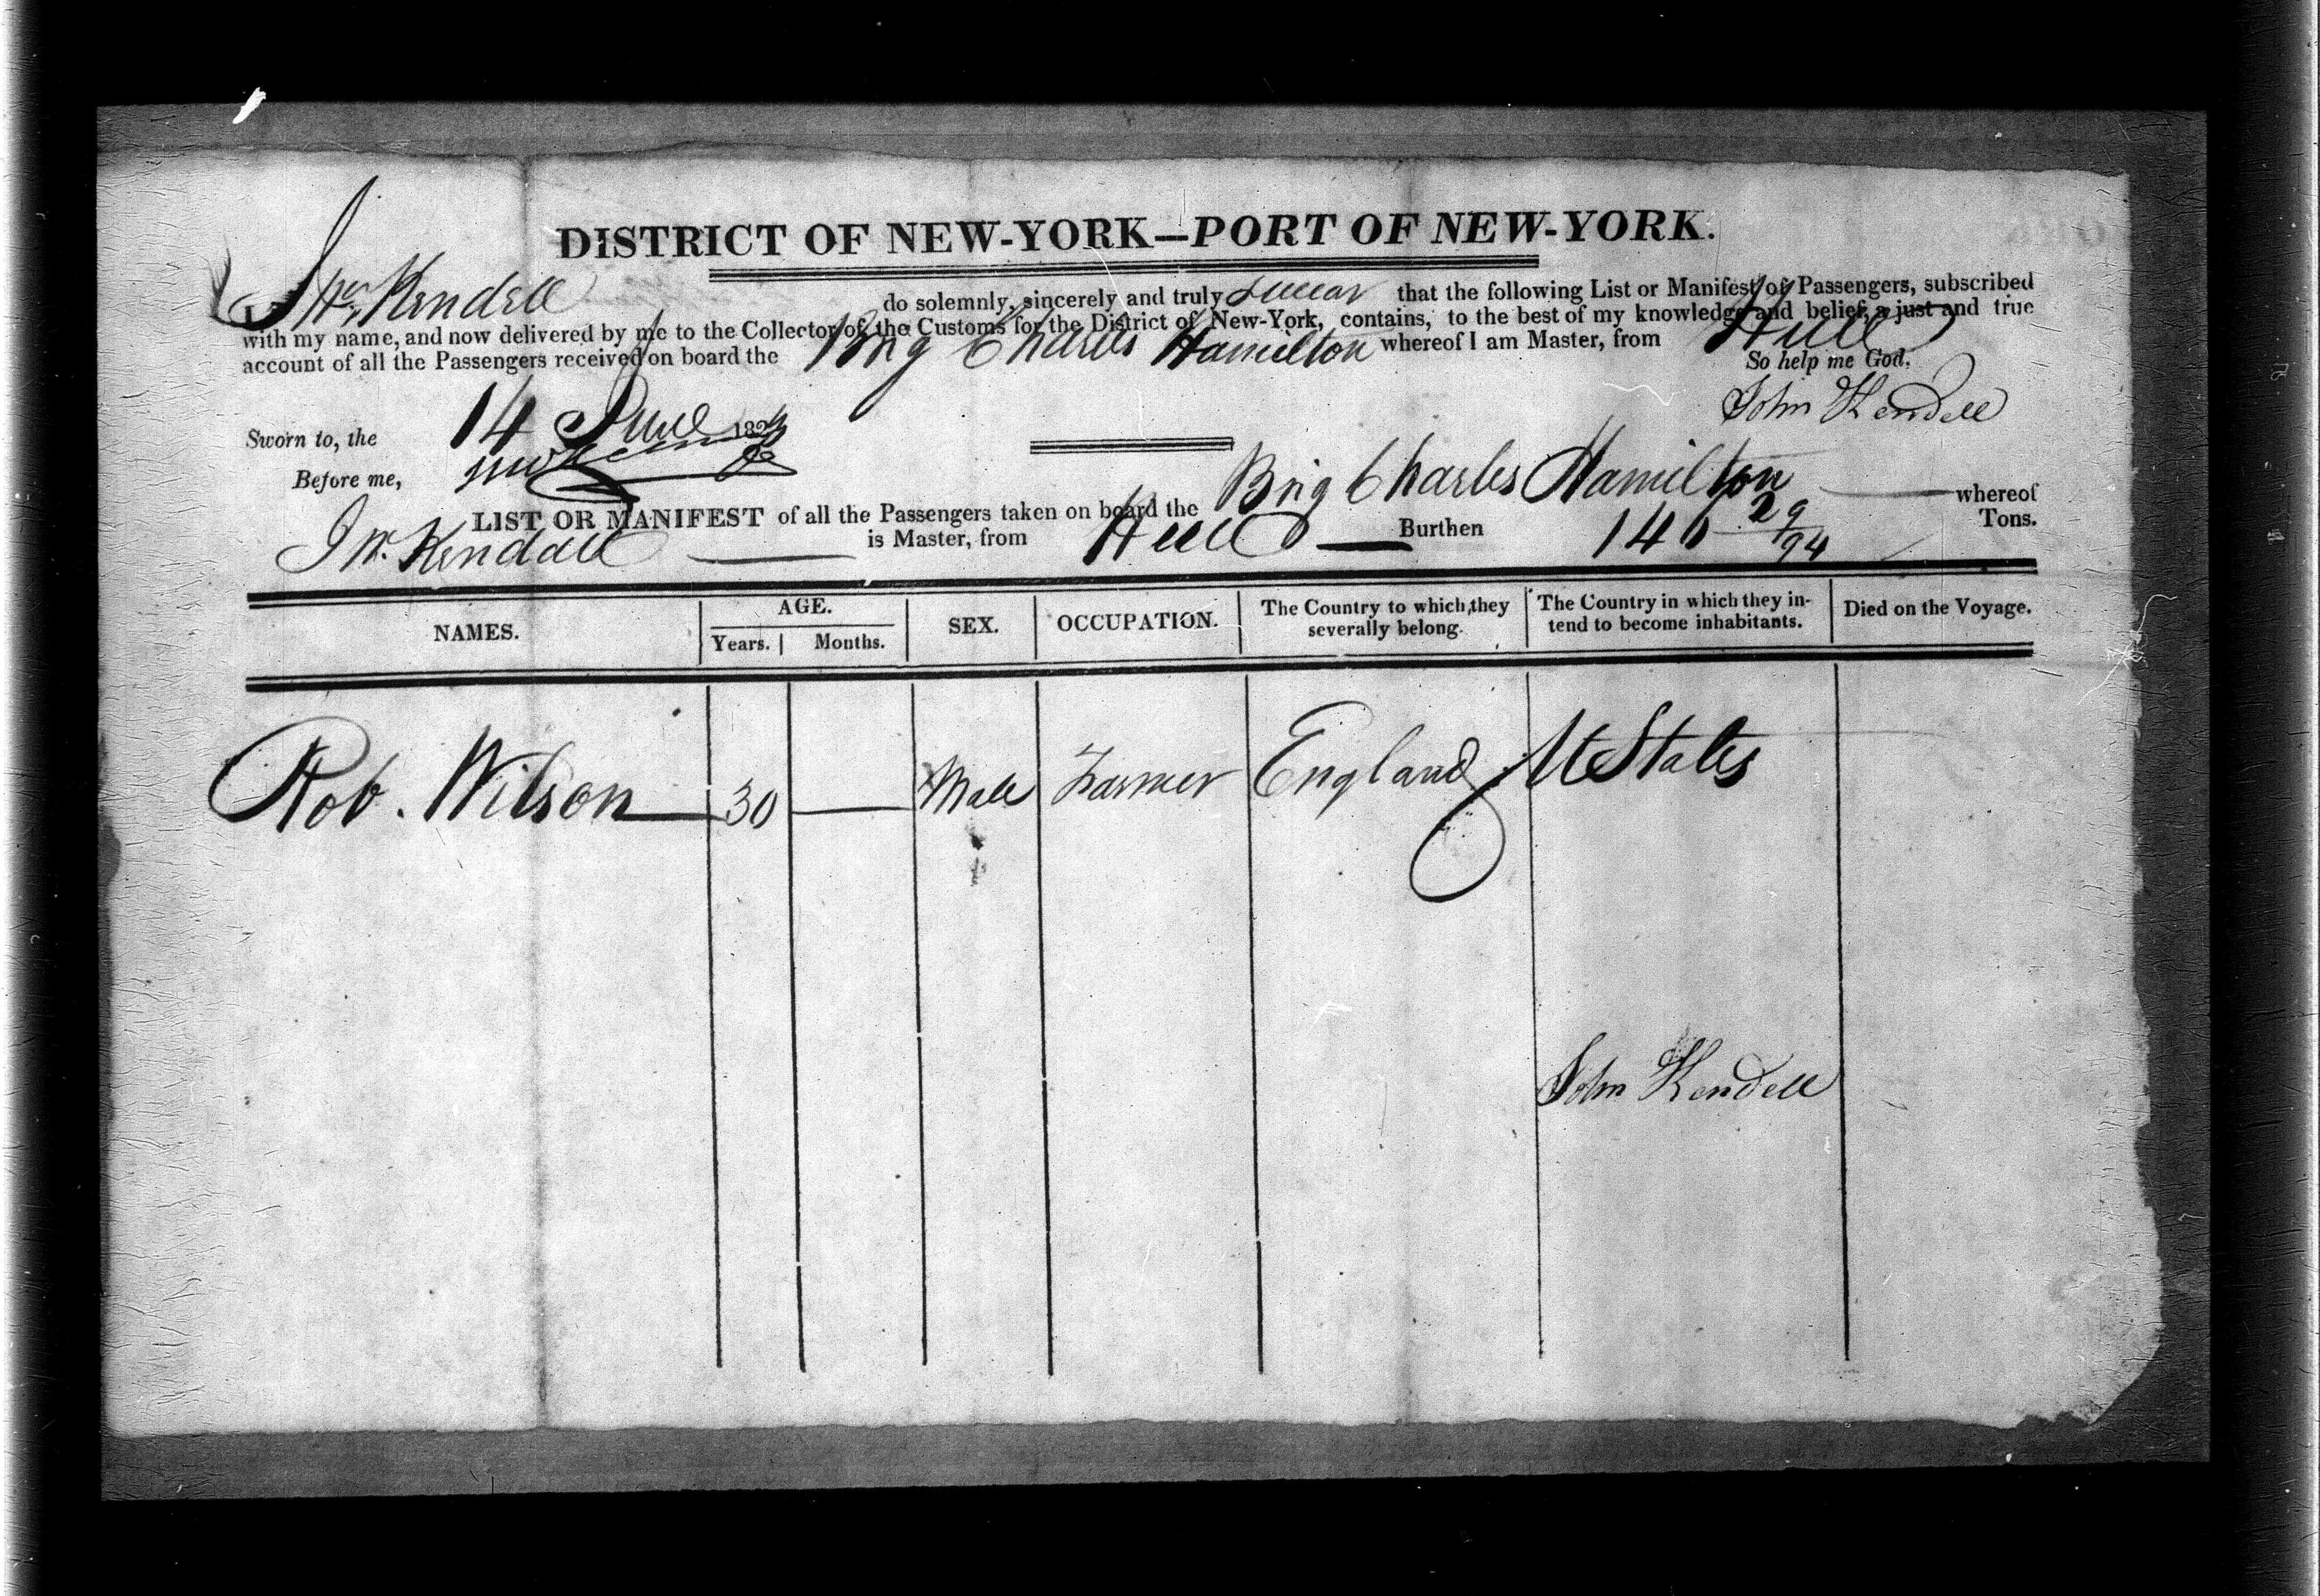 DISTRICT OF NEW-YORK—PORT OF NEW-YORK.
I, Jno. Kendell do solemnly, sincerely and truly swear that the following List or Manifest of Passengers, subscribed
with my name, and now delivered by me to the Collector of the Customs for the District of New-York, contains, to the best of my knowledge and belief, a just and true
account of all the Passengers received on board the Brig Charles Hamilton whereof I am Master, from Hull
So help me God.
John Kendell
Sworn to, the 14 June 182
Before me,
LIST OR MANIFEST of all the Passengers taken on board the Brig Charles Hamilton whereof
Jno. Kendall is Master, from Hull Burthen 29/94 Tons.
NAMES. AGE. SEX. OCCUPATION. The Country to which they severally belong. The Country in which they in-tend to become inhabitants. Died on the Voyage.
Years. Months.
Rob. Wilson 30 — Male Farmer England U States
John Kendell